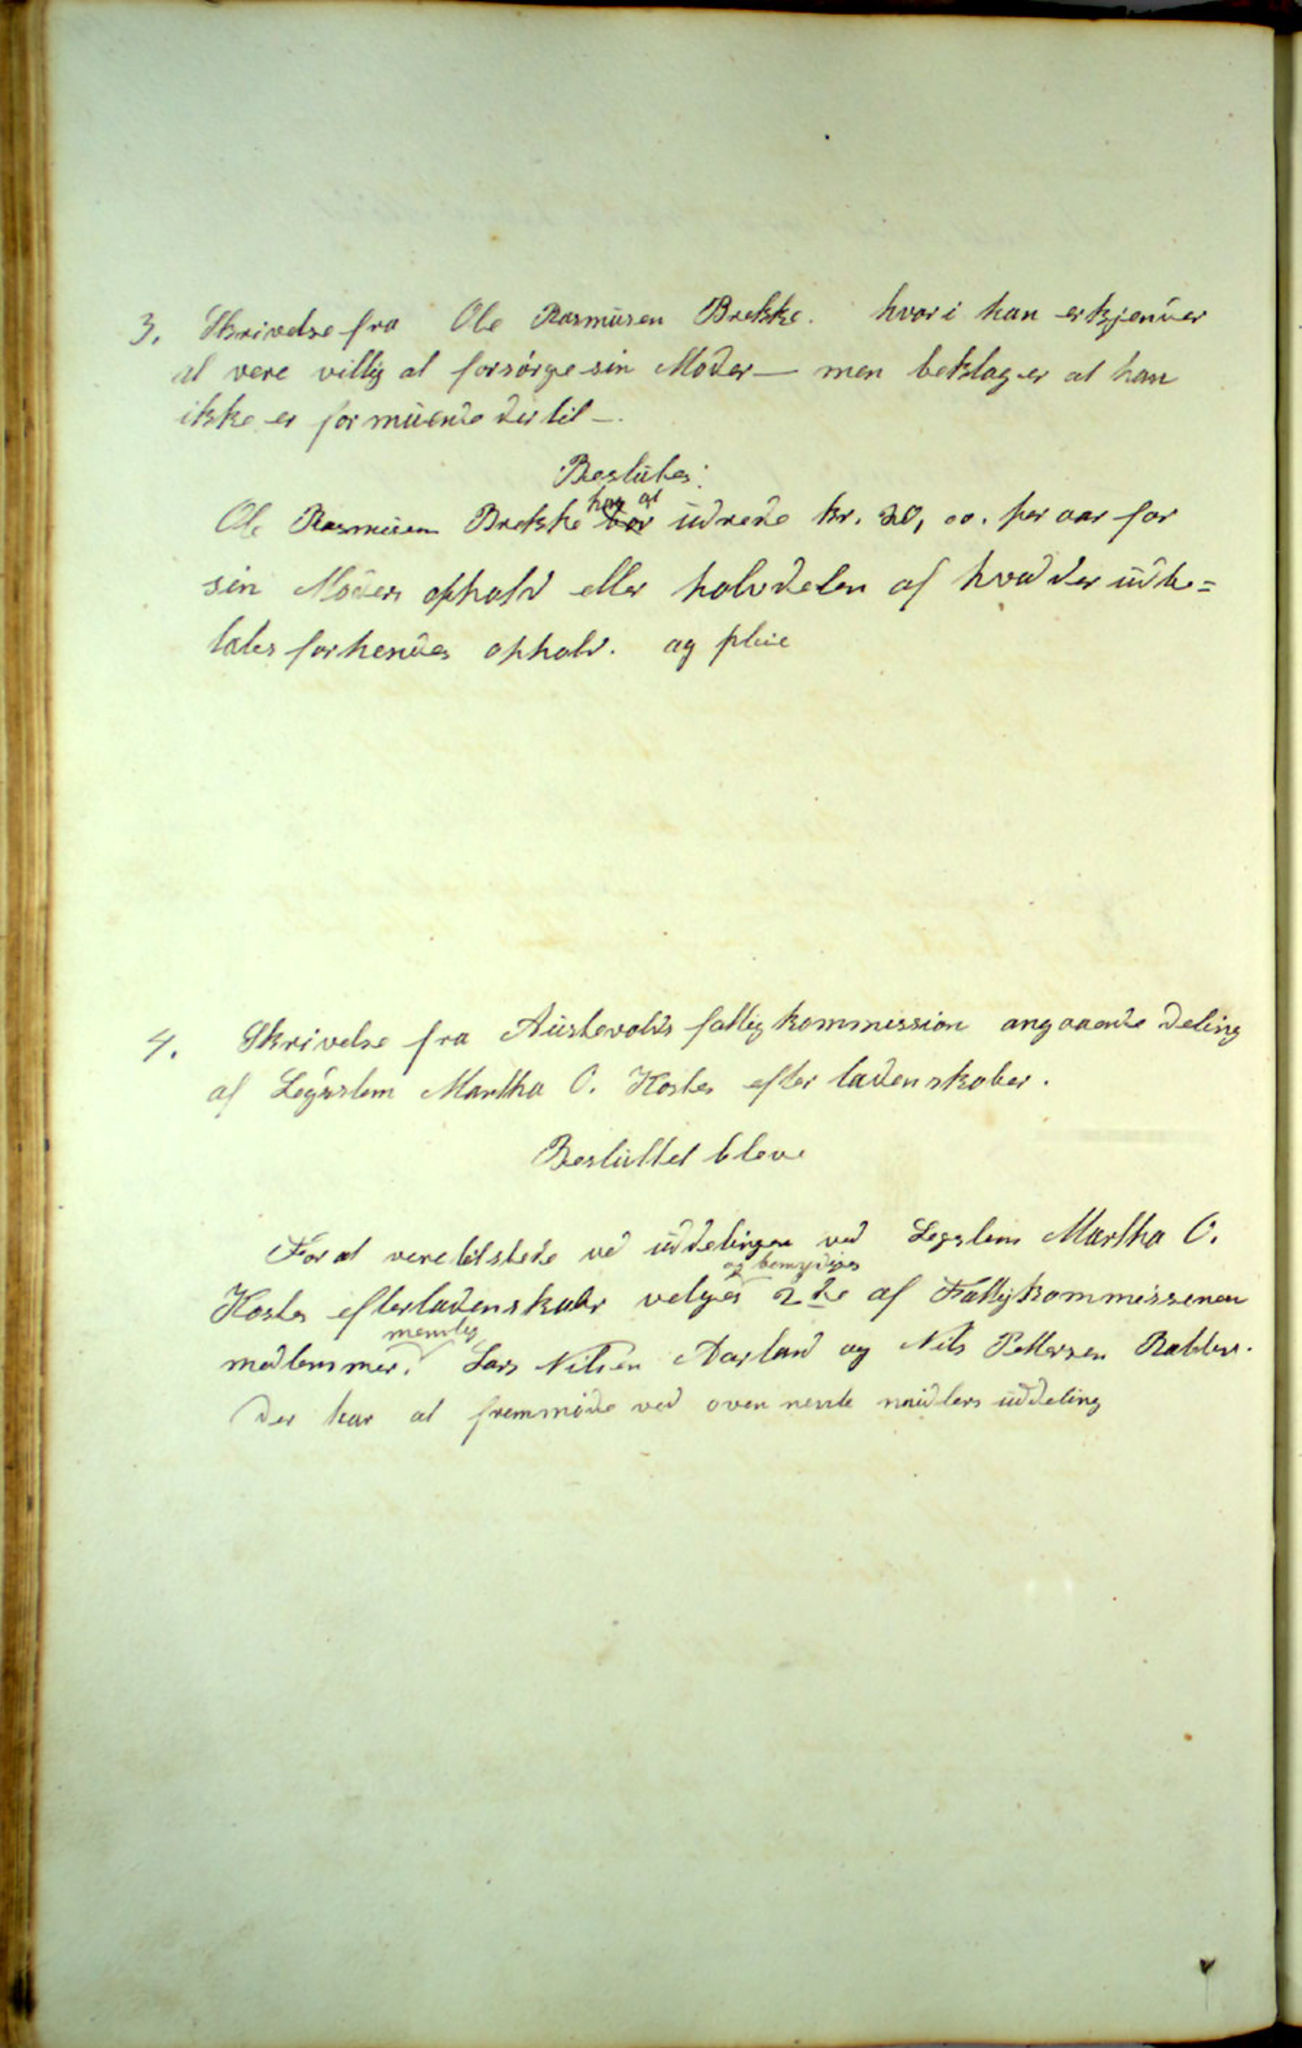 3. Skrivelse fra Ole Rasmusen Brekke. hvori han erkjender
at vere villig at forsörge sin Moder — men beklager at han
ikke er formuende dertil —.
Beslutes:
har at
Ole Rasmusen Brekke bör udrede kr. 20,00. per aar for
sin Moders ophold eller halvdelen af hvad der udbe=
tales for hendes ophold. og pleie
4. Skrivelse fra Austevolds fattigkommission angaaende deling
af Legdslem Martha O. Hosles efterladenskaber.
Besluttet blev
For at vere tilstede ved uddelingen ved Legslem Martha O.
og bemyndiges
efterladenskabr velges 2de af Fattigkommissenen
nemlig
medlemmer. Lars Nilsen Aarland og Nils Pettersen
der har at fremmöde ved ovennevnte midlers uddeling